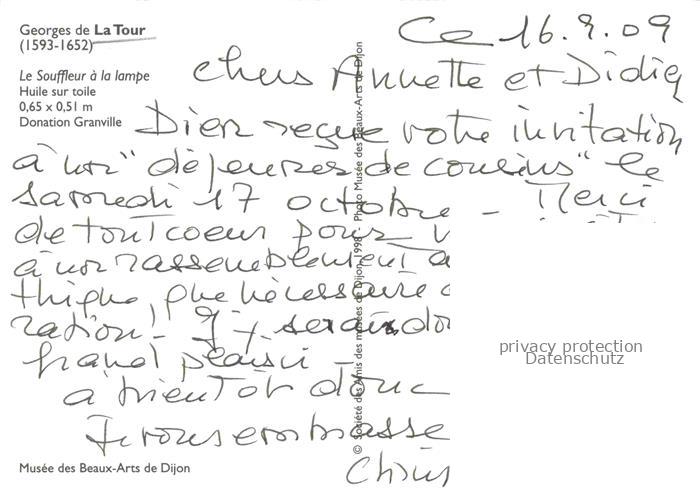 Georges de La Tour
(1593-1652)
Le Souffleur à la lampe
Huile sur toile
0,65 x 0,51 m
Donation Granville
Ce 16.9.09
Chers Annette et Didie
Bien reçue votre invitation
à un "déjeuner de cousins" le
samedi 17 octobre - Merci
de tout coeur pour v
à un rassemblement a
thique, que nécessaire
ration! J'y serai do
grand plaisir -
à bientôt donc
Je vous embrasse
Chris
© Société des Amis des musées de Dijon, 1998 - Photo Musée des Beaux-Arts de Dijon
privacy protection
Datenschutz
Musée des Beaux-Arts de Dijon